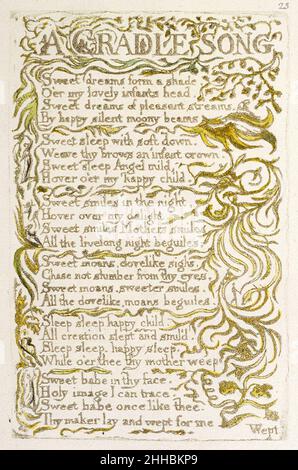 23
A CRADLE SONG
Sweet dreams form a shade
O'er my lovely infants head.
Sweet dreams of pleasant streams,
By happy silent moony beams
Sweet sleep with soft down,
Weave thy brows an infant crown.
Sweet sleep Angel mild,
Hover o'er my happy child.
Sweet smiles in the night,
Hover over my delight.
Sweet smiles Mothers smiles
All the livelong night beguiles.
Sweet moans, dovelike sighs,
Chase not slumber from thy eyes.
Sweet moans, sweeter smiles,
All the dovelike moans beguiles.
Sleep sleep happy child.
All creation slept and smil'd.
Sleep sleep, happy sleep,
While o'er thee thy mother weep
Sweet babe in thy face,
Holy image I can trace.
Sweet babe once like thee.
Thy maker lay and wept for me
Wept
alamy
Image ID: 2HHBKP9
www.alamy.com